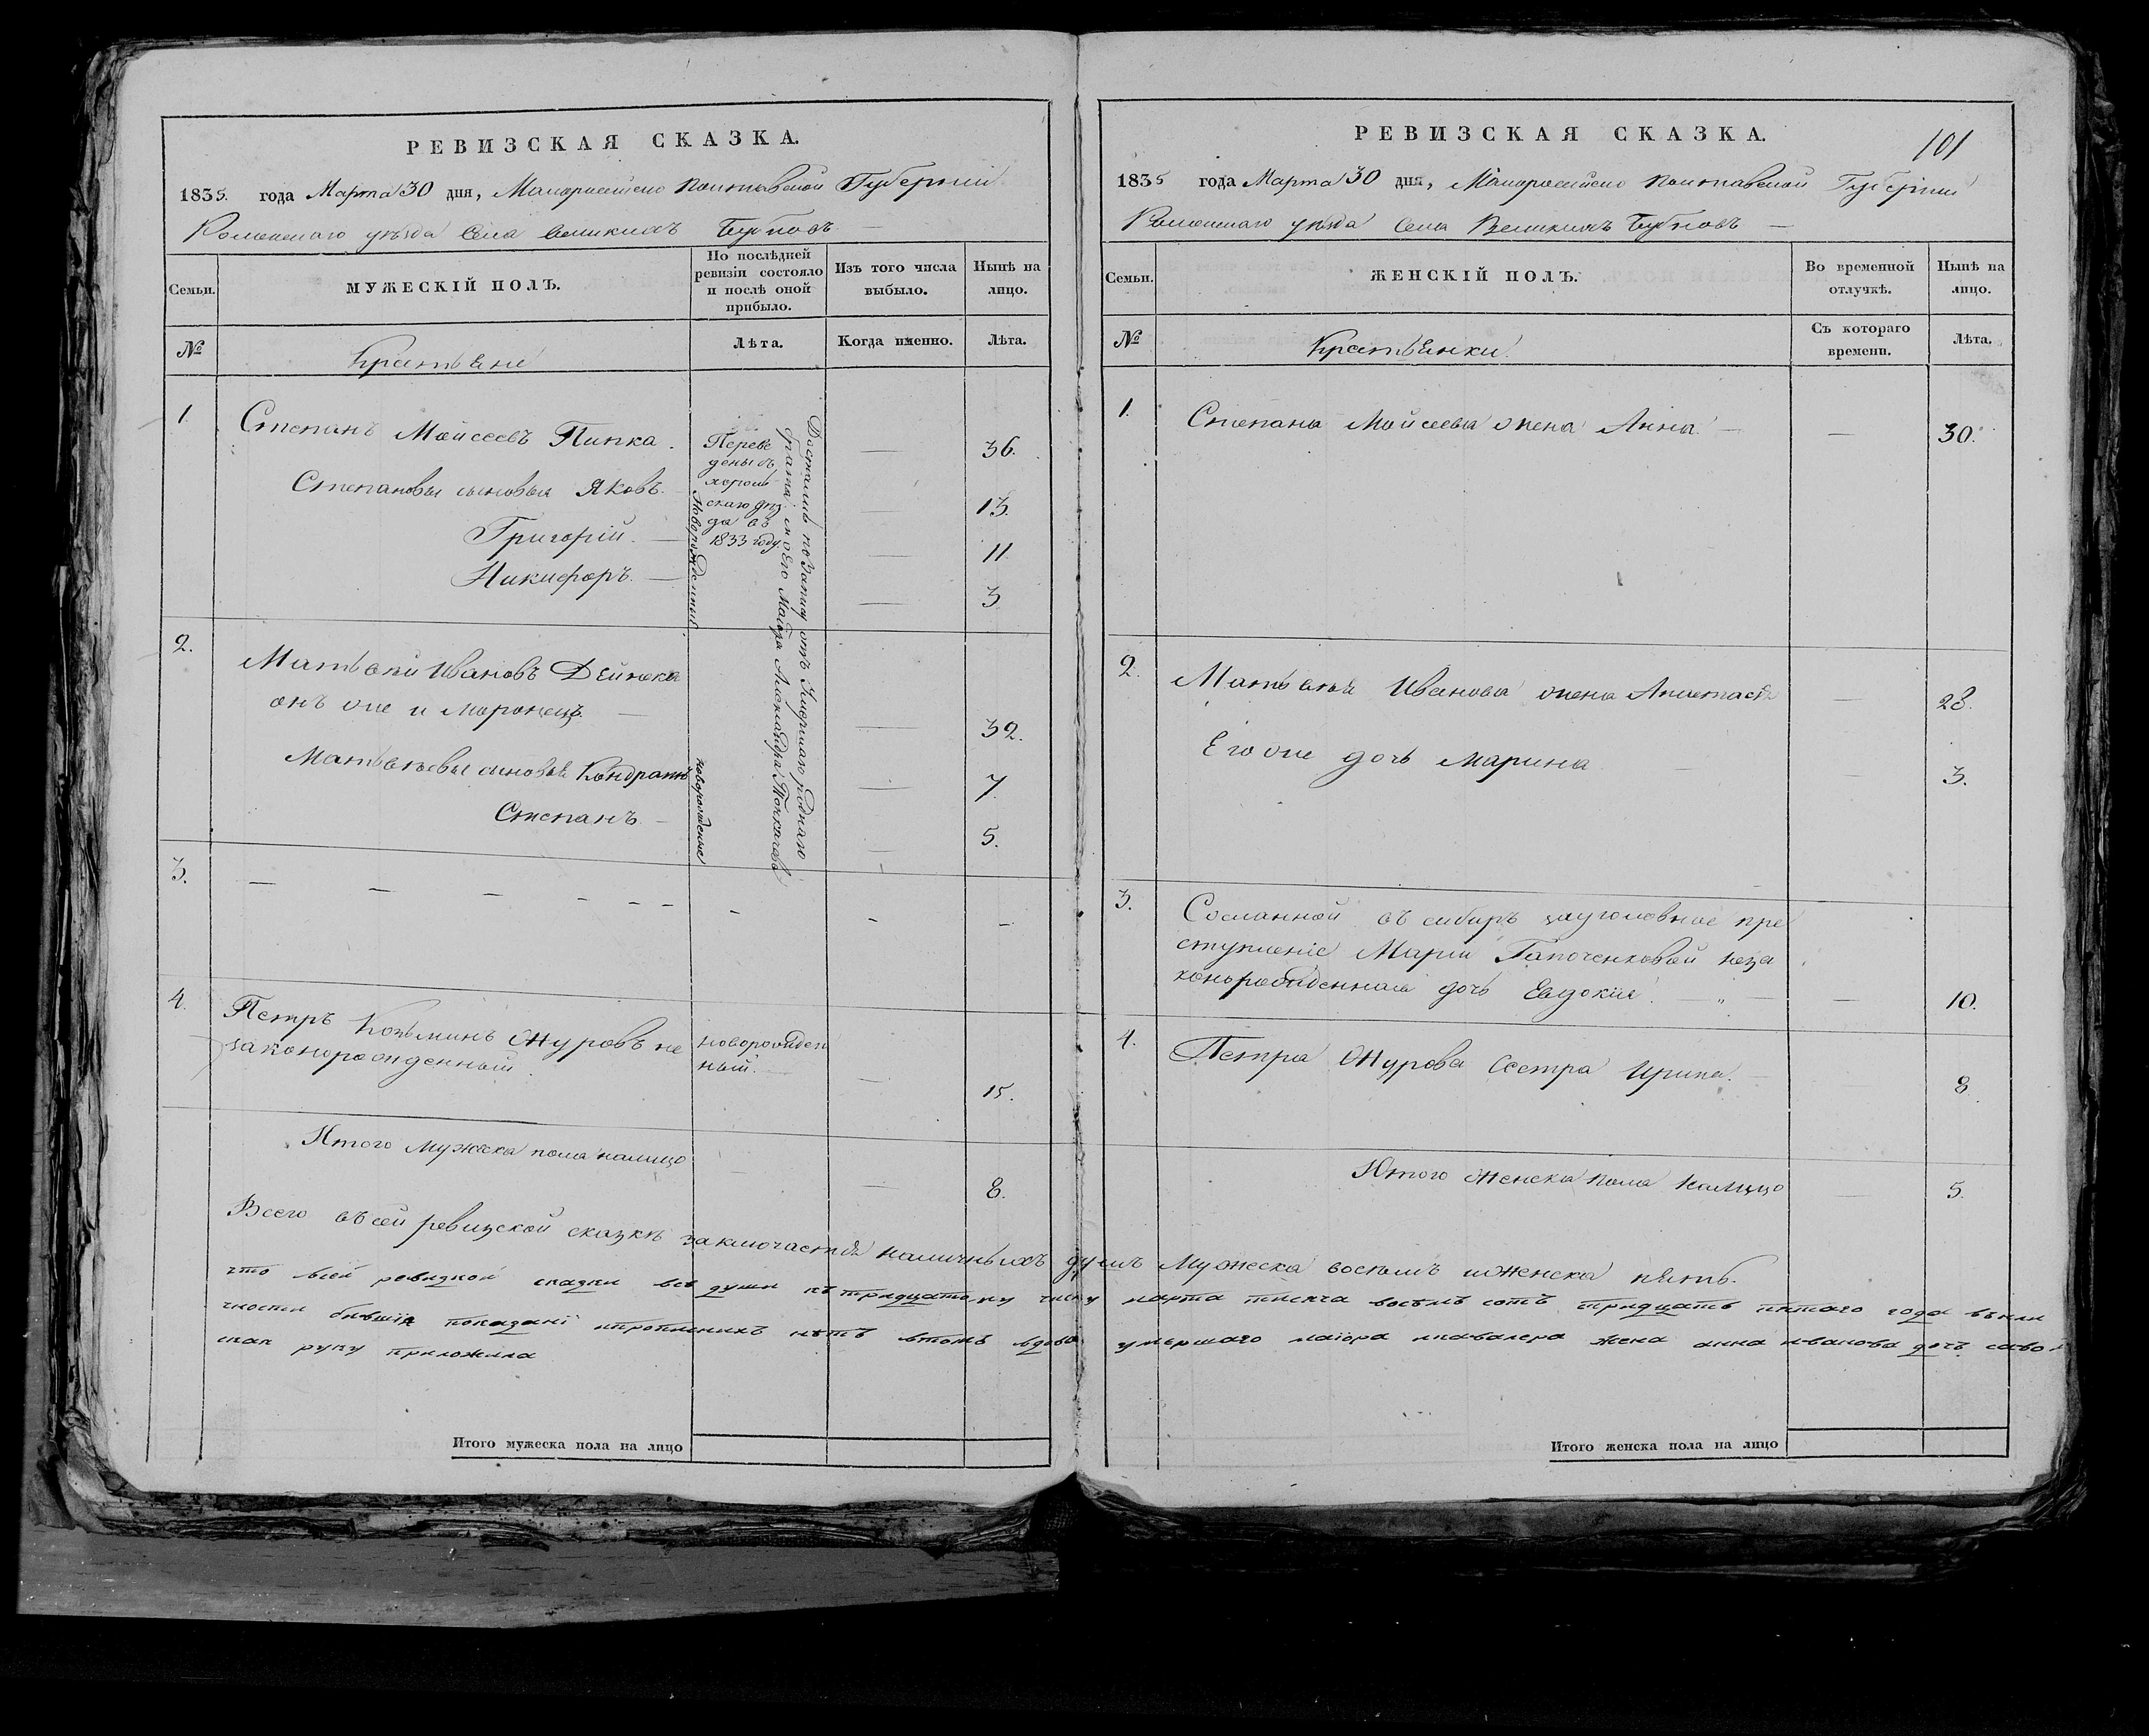 РЕВИЗСКАЯ СКАЗКА.
1835. года Марта 30 дня, Малоросійско Полтавской Губерніи
Роменскаго уѣзда Села великихъ Бубновъ
Семьи.
МУЖЕСКІЙ ПОЛЪ.
По послѣдней
ревизіи состояло
и послѣ оной
прибыло.
Изъ того числа
выбыло.
Нынѣ на
лицо.
№
Крестьяне
Лѣта.
Когда именно.
Лѣта.
1.
Степанъ Мойсеевъ Пипка.
36.
Степановы сыновья Яковъ.
13.
Григорій.
11
Никифоръ.
3
Переве
дены съ
хороль
скаго уѣз
да въ
1833 году.
Новорожденный
Достались по Запису отъ умершаго роднаго
брата моего Маіора Александра
2.
Матвѣй Ивановъ Дейнека
онъ же и Маронецъ.
32.
Матвѣевы сыновья Кондратъ
7.
Степанъ
5.
новорожденные
3.
4.
Петръ Козьминъ Журовъ не
законорожденный.
новорожден
ный.
15.
Итого Мужеска пола налицо
8.
РЕВИЗСКАЯ СКАЗКА.
101
1835 года Марта 30 дня, Малоросійско Полтавской Губерніи
Роменскаго уѣзда Села Великихъ Бубновъ
Семьи.
ЖЕНСКІЙ ПОЛЪ.
Во временной
отлучкѣ.
Нынѣ на
лицо.
№
Крестьянки.
Съ котораго
времени.
Лѣта.
1.
Степана Мойсеева жена Анна
30.
2.
Матвѣя Иванова жена Анастасія
28.
Его же дочь Марина
3.
3.
Сосланной въ сибирь зауголовное пре
ступленіе Маріи Гапоченковой неза
конорожденная дочь Евдокія.
10.
4.
Петра Журова Сестра Ирина.
8
Итого Женска пола налицо
5.
Всего въ сей ревизской сказкѣ заключается наличныхъ душъ Мужеска восемъ иженска пять.
что всей ревизкой сказки всѣ души къ тридцатому числу марта тисяча восемъ сотъ тридцать пятаго года вънали
чности бившія показані ипрописнихъ нѣтъ втомъ вдова умершаго маіора икавалера жена анна иванова дочь
руку приложила
Итого мужеска пола на лицо
Итого женска пола на лицо